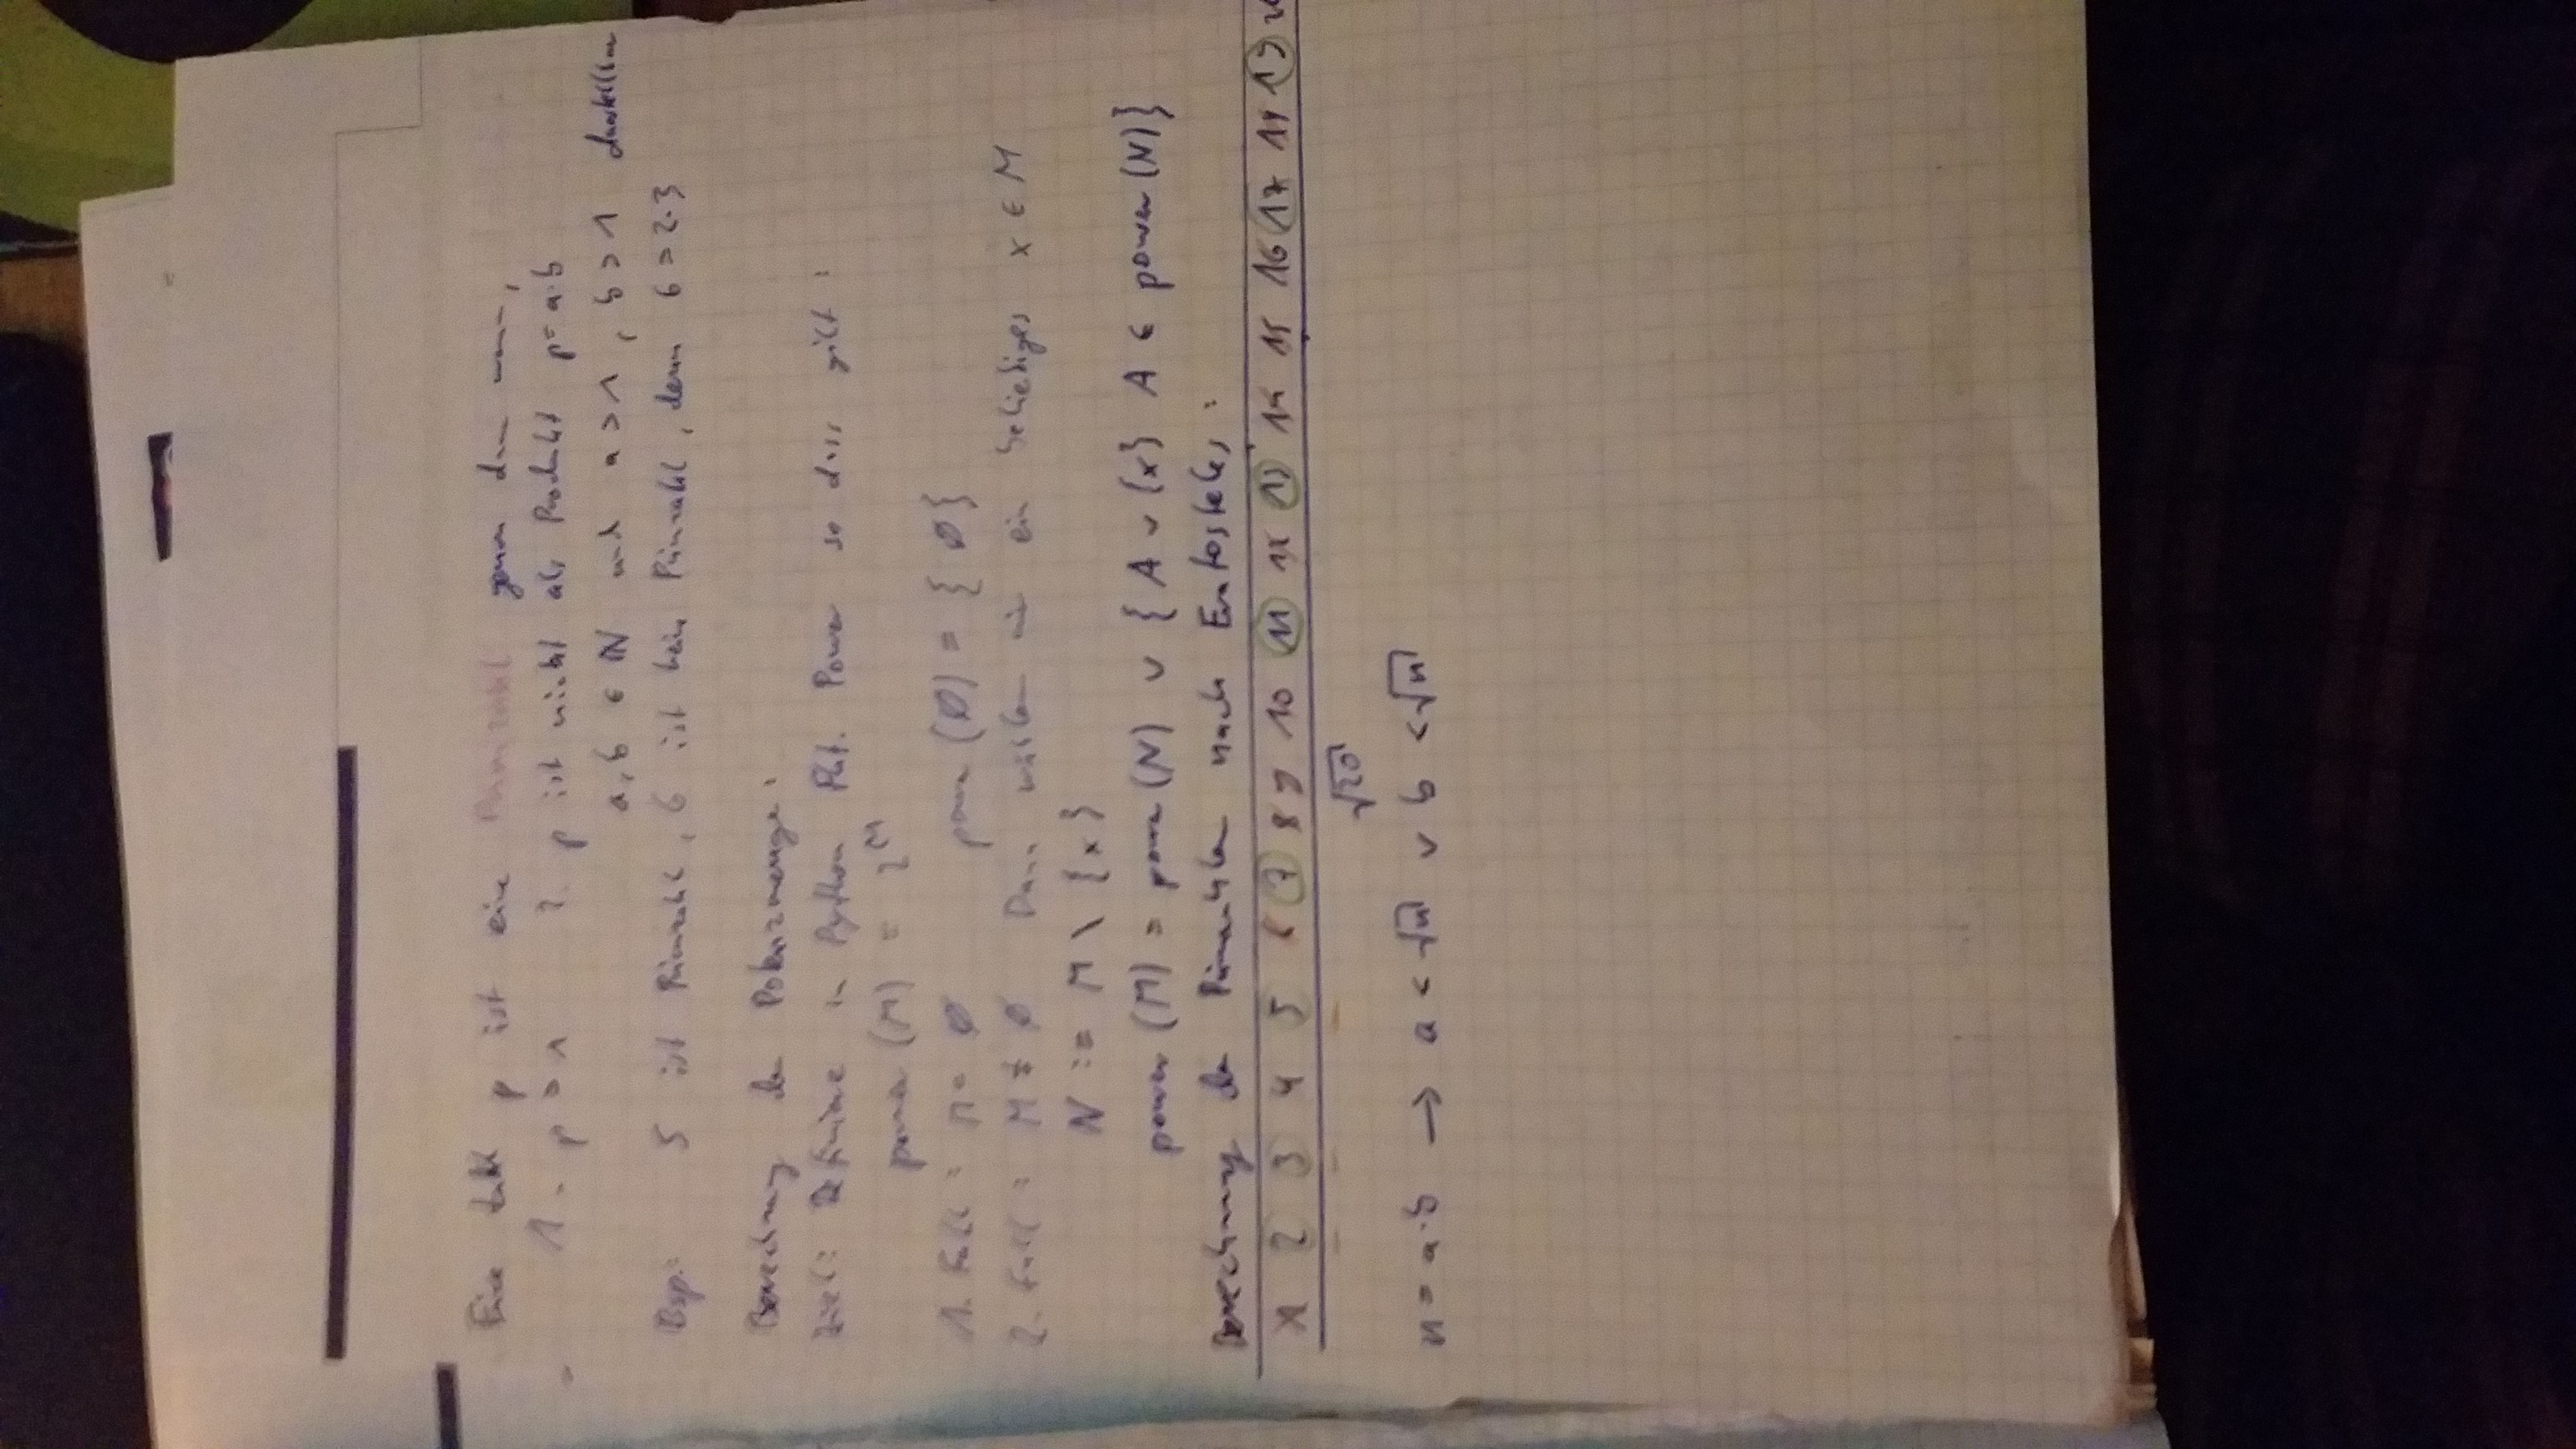 Eine Zahl p ist eine Primzahl genau dann wenn,
1. p > 1 2. p ist nicht als Produkt p = a·b
a, b ∈ ℕ und a > 1, b > 1 darstellbar
Bsp.: 5 ist Primzahl, 6 ist keine Primzahl, denn 6 = 2·3
Berechnung der Potenzmenge:
Ziel: Definiere in Python Fkt. Power so dass gilt:
power (M) = 2^M
1. Fall: M = ∅ power (∅) = { ∅ }
2. Fall: M ≠ ∅ Dann wählen wir ein beliebiges x ∈ M
N := M \ {x}
power (M) = power (N) ∪ { A ∪ {x} A ∈ power (N)}
Berechnung der Primzahlen nach Eratosteles:
1 2 3 4 5 6 7 8 9 10 11 12 13 14 15 16 17 18 19
√20
n = a·b → a < √n ∨ b < √n